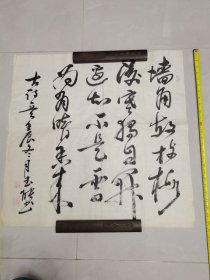 墙角数枝梅
凌寒独自开
遥知不是雪
为有暗香来
古诗